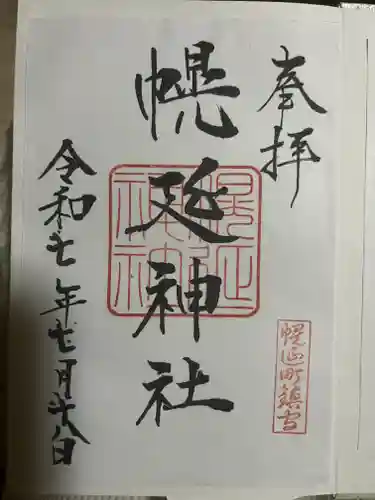 奉拝
幌延神社
令和七年七月廿八日
幌延神社
幌延町鎮守